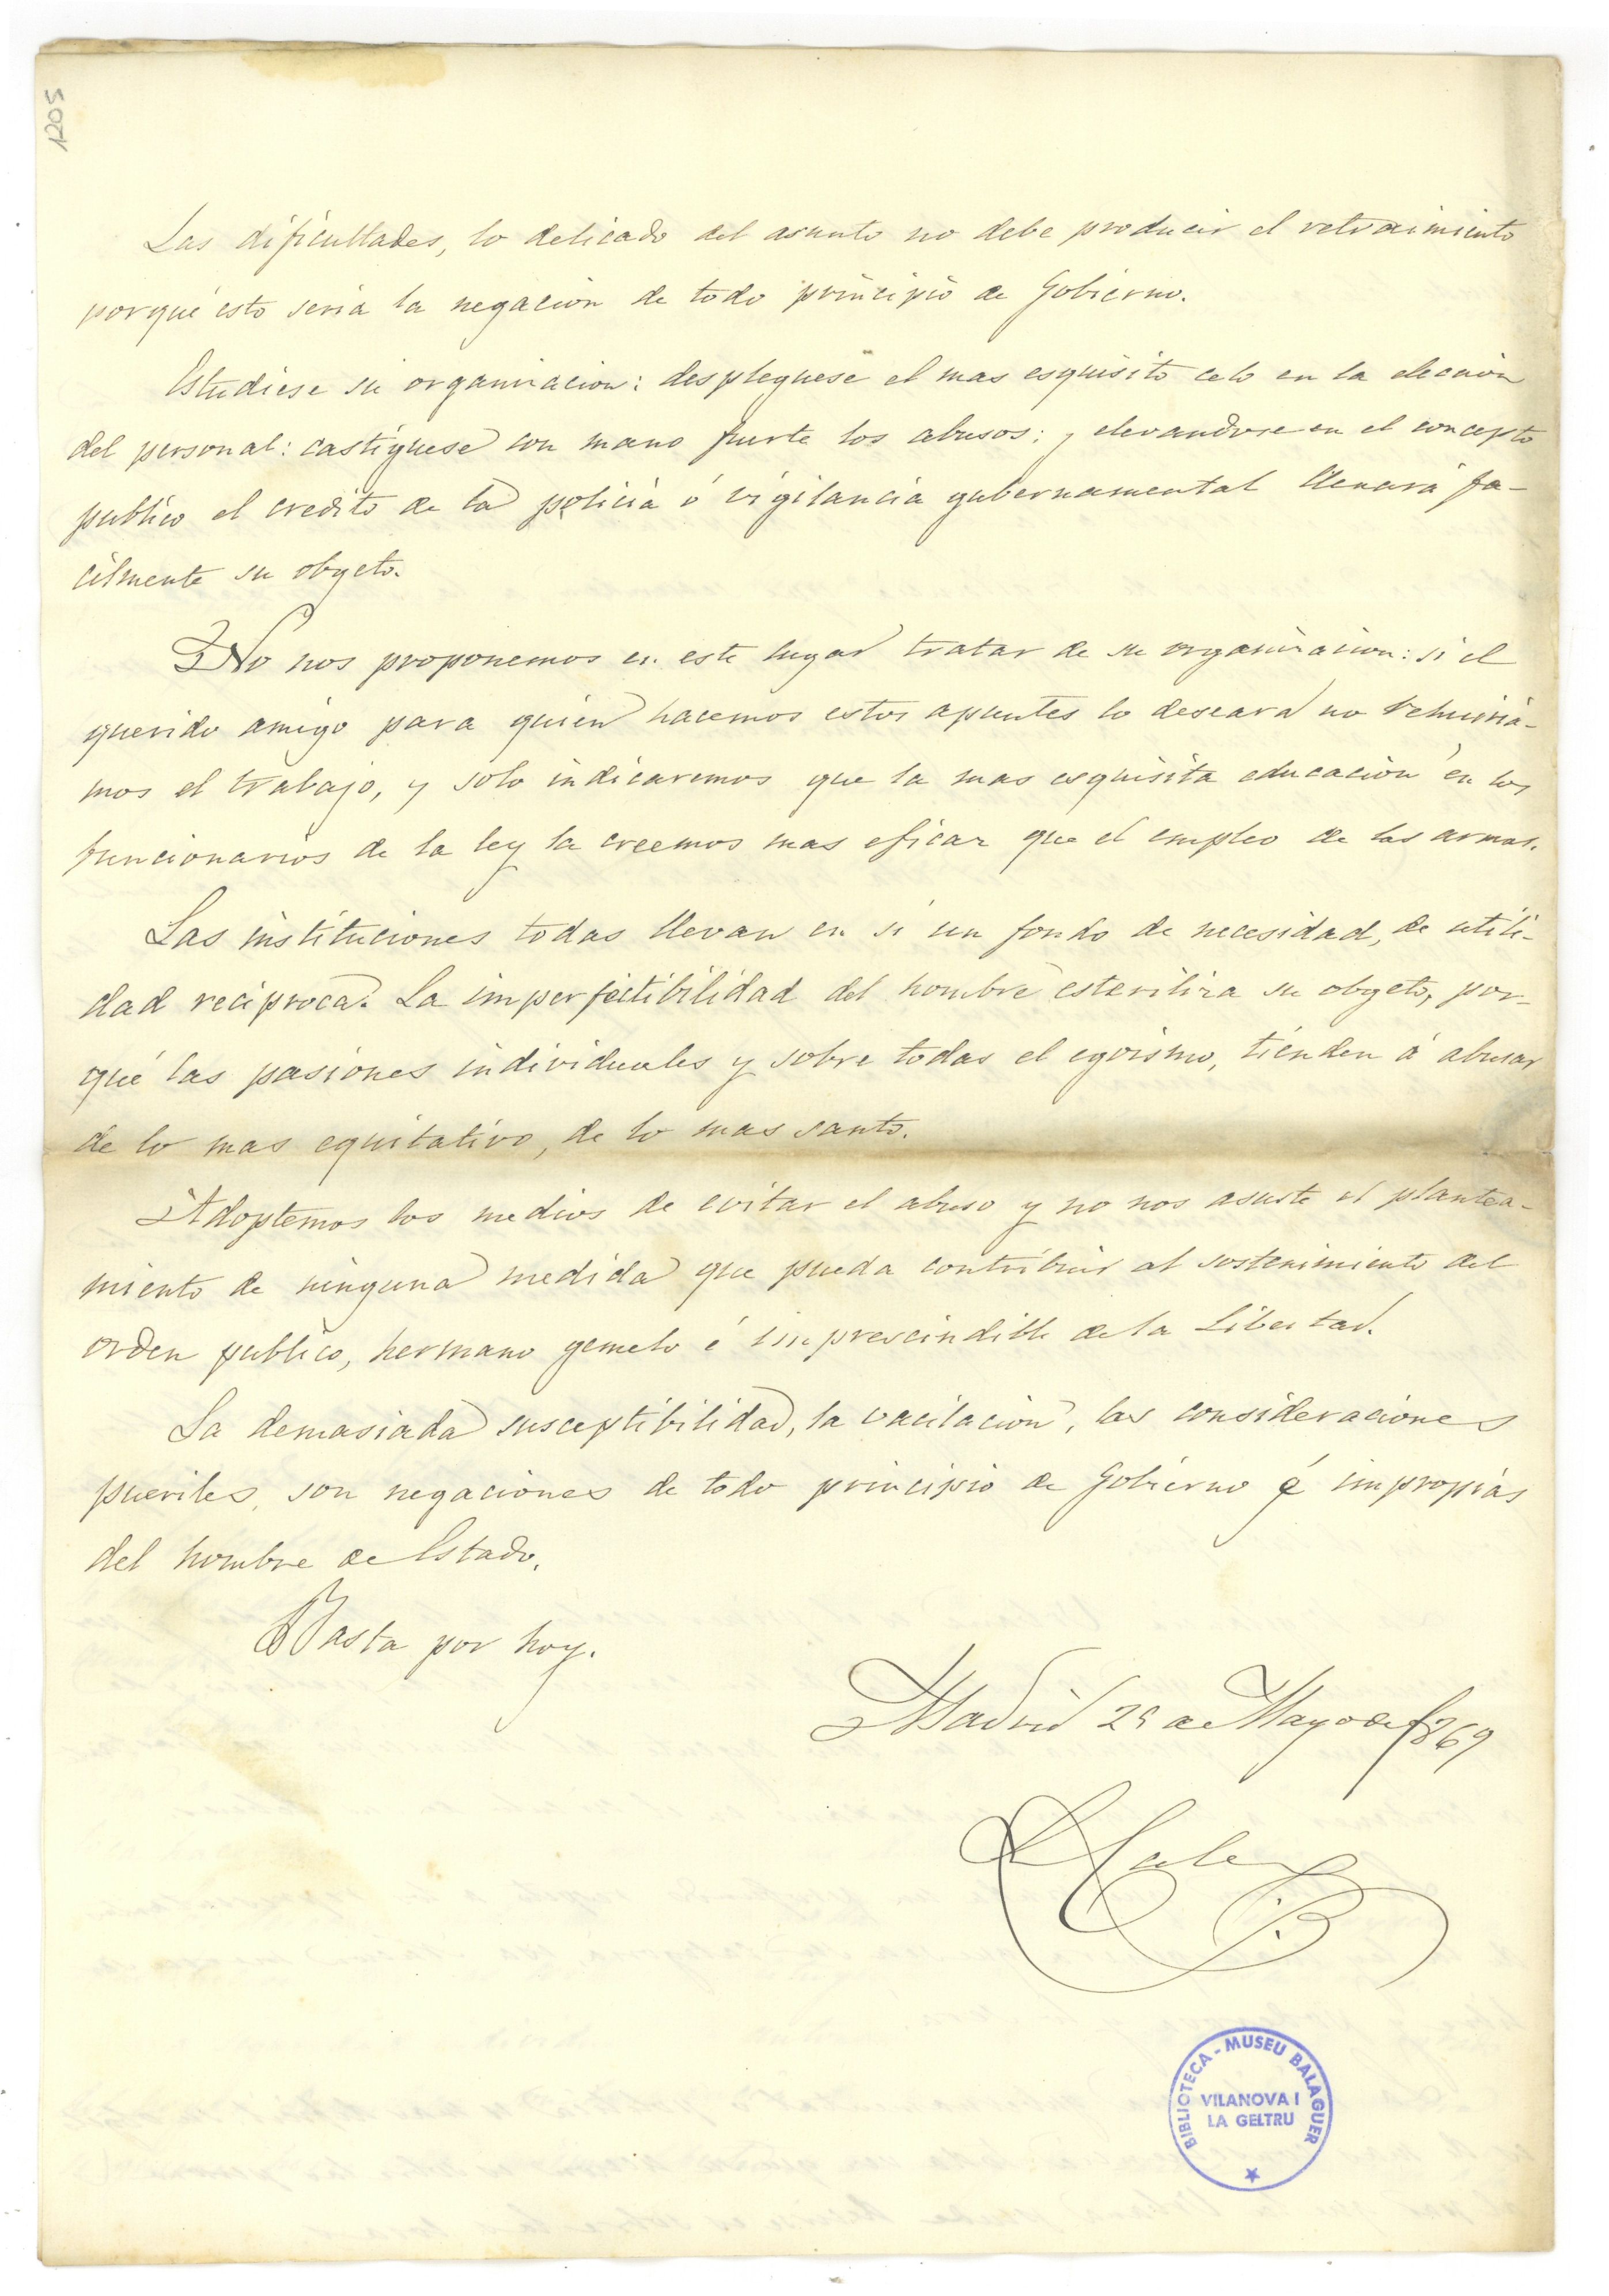 1205
Las dificultades, lo delicado del asunto no debe producir el retraimiento
porqué esto seria la negacion de todo principio de Gobierno.
Estudiese su organizacion: despleguese el mas esquisito celo en la eleccion
del personal: castiguese con mano fuerte los abusos: y elevandose en el concepto
publico el credito de la policia ó vigilancia gubernamental llenará fa-
cilmente su obgeto.
No nos proponemos en este lugar tratar de su organizacion: si el
querido amigo para quien hacemos estos apuntes lo deseara no rehuiria-
mos el trabajo, y solo indicaremos que la mas esquisita educacion en los
funcionarios de la ley la creemos mas eficaz que el empleo de las armas.
Las instituciones todas llevan en sí un fondo de necesidad, de utili-
dad reciproca. La imperfectibilidad del hombre esteriliza su obgeto, por-
qué las pasiones individuales y sobre todas el egoismo, tienden á abusar
de lo mas equitativo, de lo mas santo.
Adoptemos los medios de evitar el abuso y no nos asuste el plantea-
miento de ninguna medida que pueda contribuir al sostenimiento del
orden publico, hermano gemelo é imprescindible de la Libertad.
La demasiada susceptibilidad, la vacilacion, las consideraciones
pueriles, son negaciones de todo principio de Gobierno é impropias
del hombre de Estado.
Basta por hoy.
Madrid 29 de Mayo de 1869
BIBLIOTECA - MUSEU BALAGUER
VILANOVA I
LA GELTRU